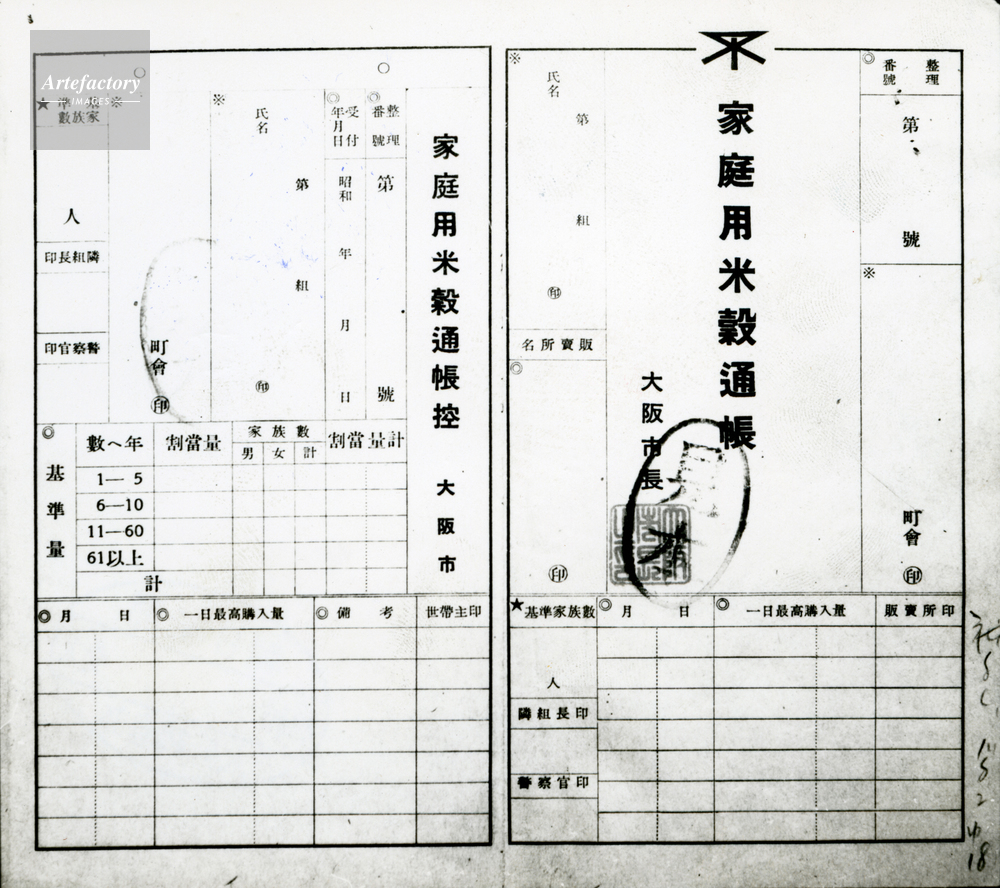 整理
番號
第
號
※
町會
印
家庭用米穀通帳
大阪市長
※
氏名
第
組
印
販賣所名
印
★基準家族數
人
隣組長印
警察官印
◎月 日
◎一日最高購入量
販賣所印
家庭用米穀通帳控
大阪市
整理
番號
第
號
受付
年月日
昭和
年
月
日
※
氏名
第
組
印
※
町會
印
★
基準
家族數
人
隣組長印
警察官印
◎
基準量
數へ年
割當量
家族數
男 女 計
割當量計
1—5
6—10
11—60
61以上
計
◎月 日
◎一日最高購入量
◎備考
世帶主印
Artefactory
IMAGES
18